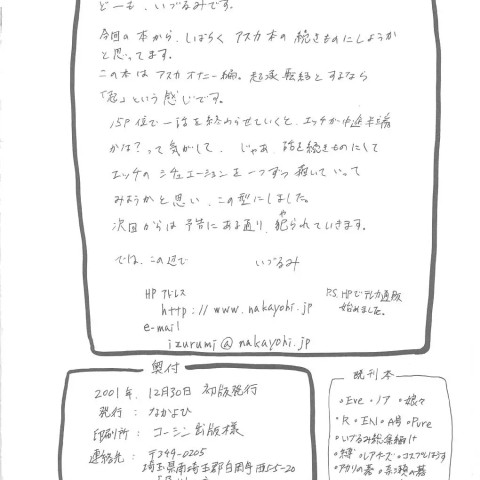 どーも、いづるみです。
今回の本から、しばらくアスカ本の続きものにしようか
と思ってます。
この本はアスカオナニー編。起承転結とするなら
「起」という感じです。
15P位で一話を終わらせていくと、エッチが中途半端
かは?って気がして、じゃあ、話を続きものにして
エッチのシチュエーションを一つずつ描いていって
みようかと思い、この型にしました。
次回からは予告にある通り、犯られていきます。
や
では、この辺で いづるみ
HPアドレス
http://www.nakayohi.jp
e-mail
izurumi@nakayohi.jp
P.S. HPでテレカ通販
始めました。
奥付
2001年、12月30日 初版発行
発行:なかよひ
印刷所:コーシン出版様
連絡先:〒349-0205
埼玉県南埼玉郡白岡町西5-5-20
既刊本
・Eve・ノア・娘々
・R・ENI・A号・Pure
・いづるみ総集編